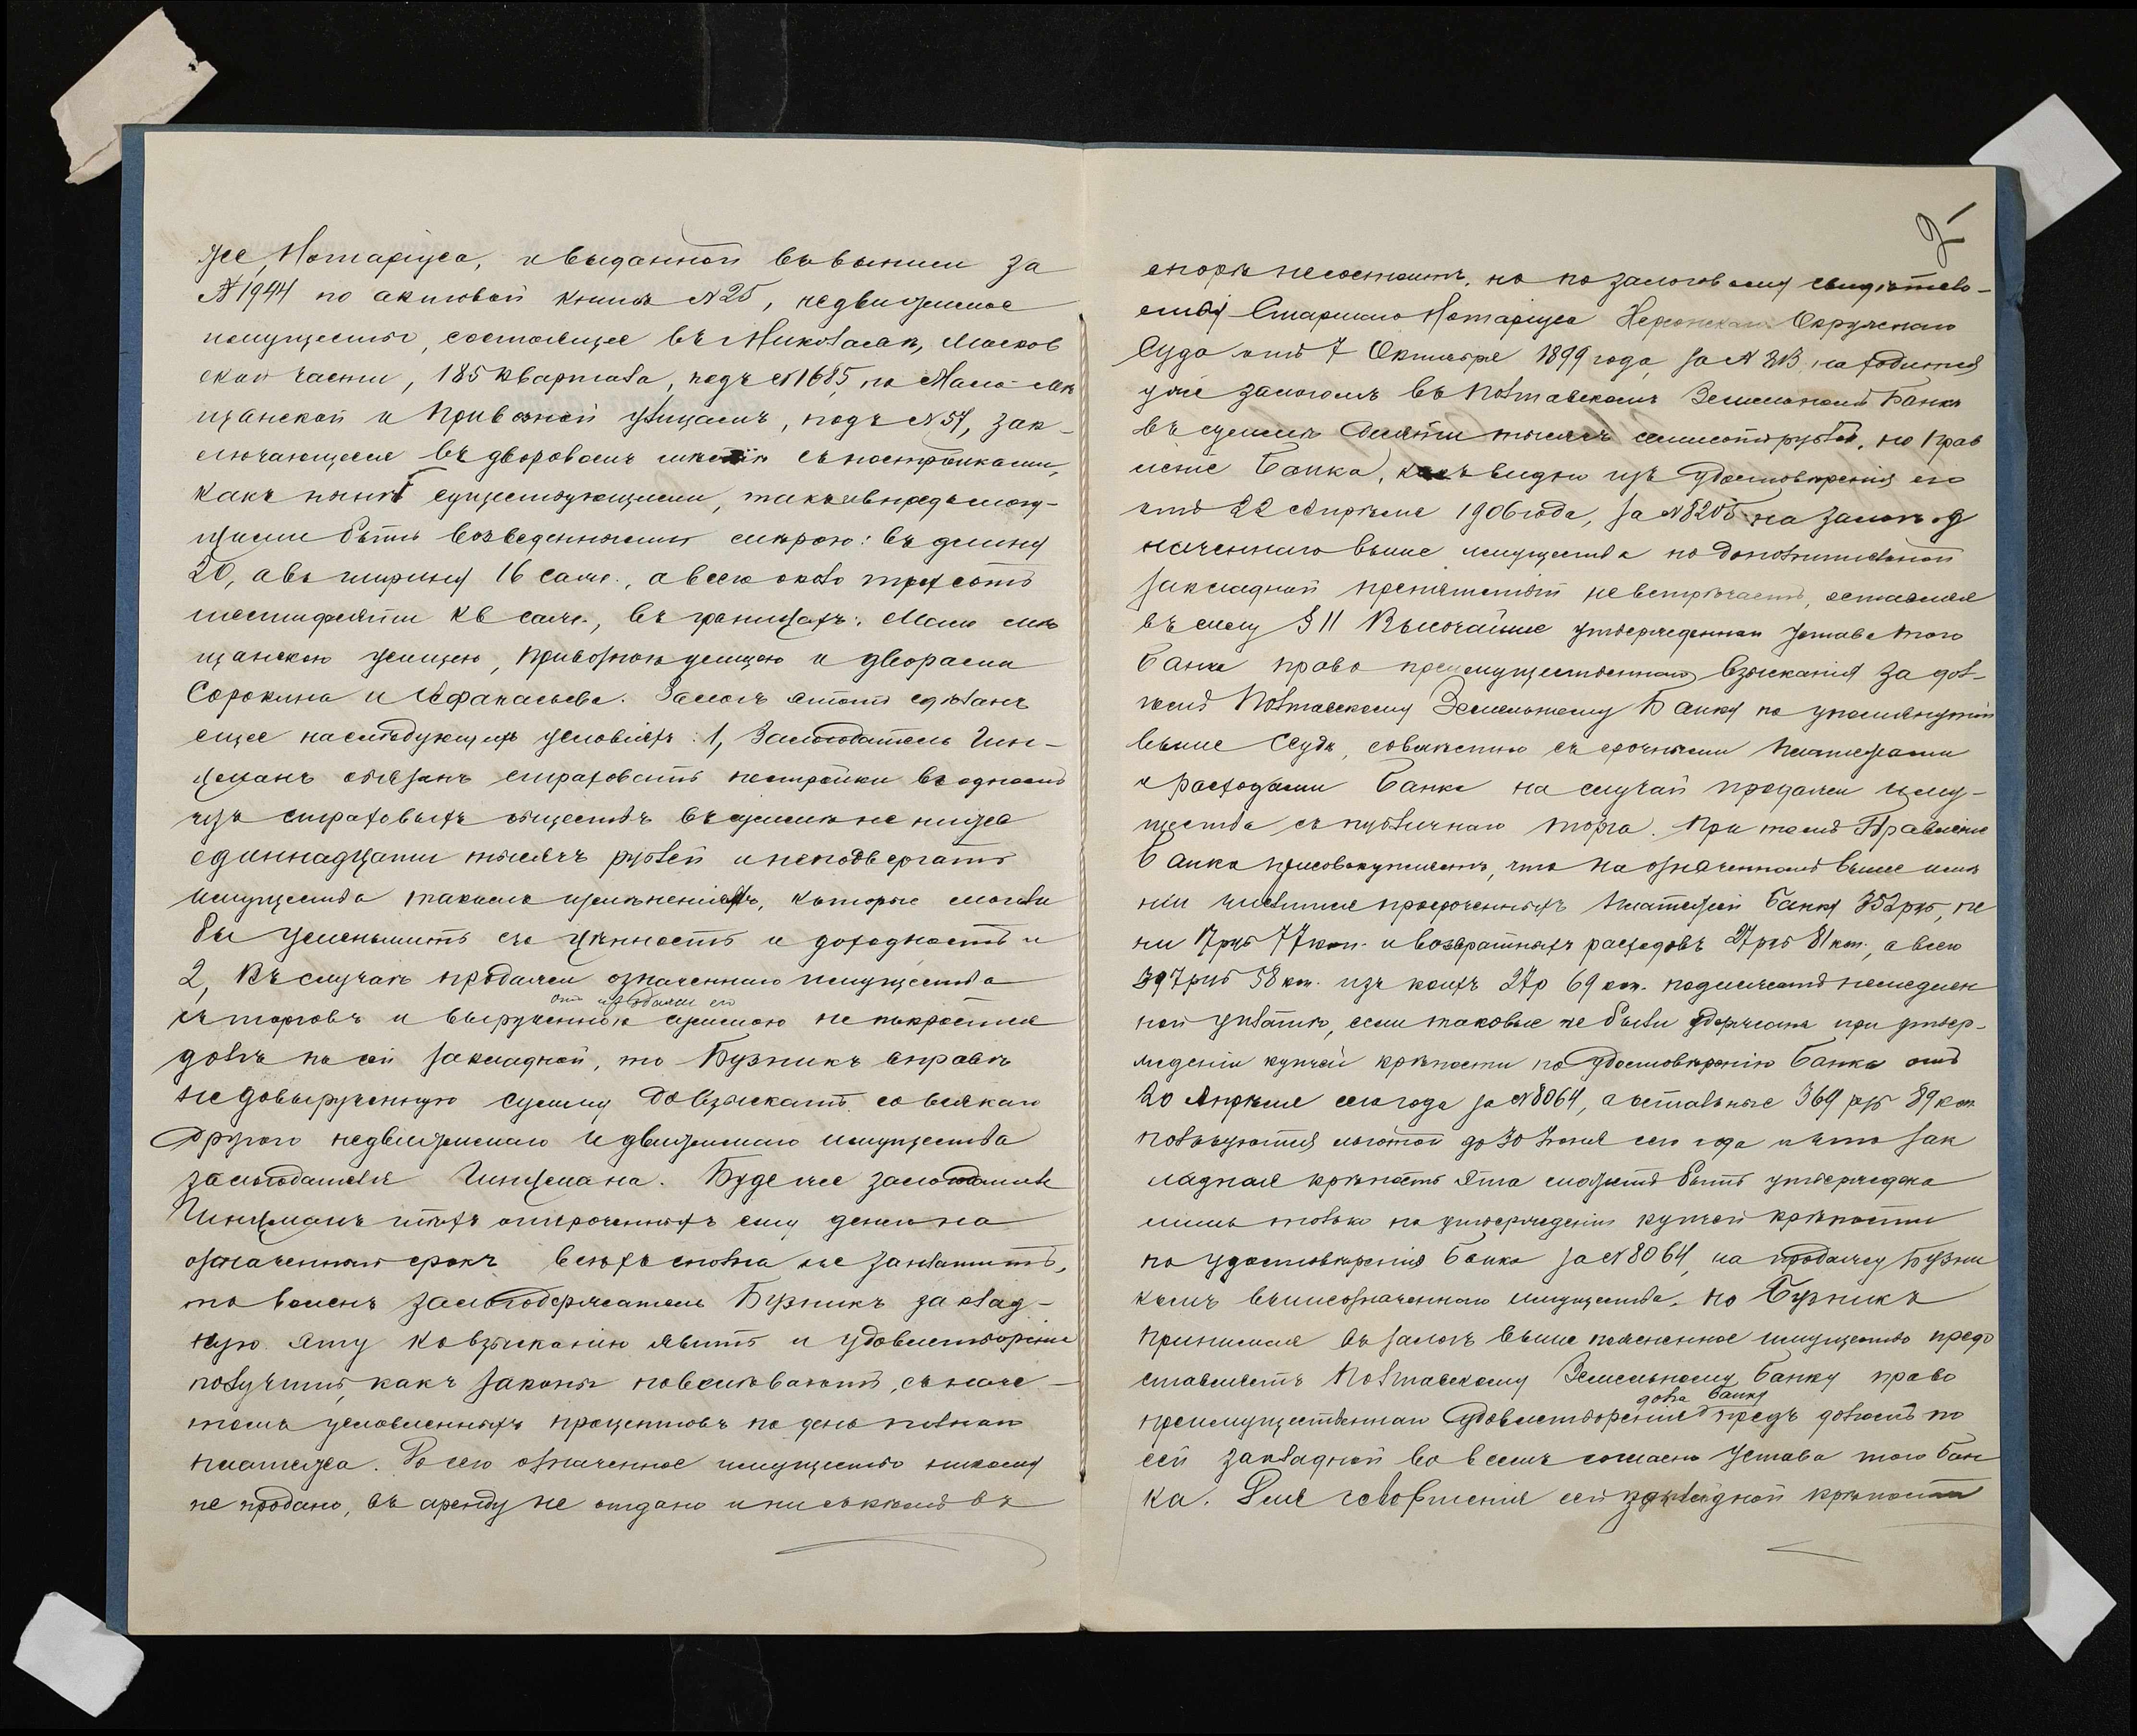 же, Нотаріуса, и выданной въ выписи за
№ 1944 по актовой книгѣ № 25, недвижимое
имущество, состоящее въ Николаевѣ, Москов
ской части, 185 квартала, подъ № 1685, по Мало-Мѣ
щанской и Привозной улицамъ, подъ № 57, зак-
лючающееся въ дворовомъ мѣстѣ съ постройками,
какъ нынѣ существующими, такъ и впредь могу-
щими быть возведенными мѣрою: въ длину
20, а въ ширину 16 саж., а всего около трехсотъ
шестидесяти кв саж., въ границахъ: Мало мѣ
щанскою улицею, Привозною улицею и дворами
Сорокина и Афанасьева. Залогъ этотъ сдѣланъ
еще на слѣдующихъ условіяхъ: 1, Залогодатель Гин-
цманъ обязанъ страховать постройки въ одномъ
изъ страховыхъ обществъ въ суммѣ не ниже
одиннадцати тысячъ рублей и не подвергать
имущества такимъ измѣненіямъ, которыя могли
бы уменьшить его цѣнность и доходность и
2, Въ случаѣ продажи означеннаго имущества
отъ продажи его
съ торговъ и вырученною суммою не покроется
долгъ по сей закладной, то Бузникъ вправѣ
недовырученную сумму довзыскать со всякаго
другого недвижимаго и движимаго имущества
залогодателя Гинцмана. Буде же залогодатель
Гинцманъ тѣхъ отсроченныхъ ему денегъ на
означенный срокъ всѣхъ сполна не заплатитъ,
то воленъ залогодержатель Бузникъ заклад-
ную эту ко взысканію явить и удовлетвореніе
получить, какъ законы повелѣваютъ, съ наче-
томъ условленныхъ процентовъ по день полнаго
платежа. До сего означенное имущество никому
не продано, въ аренду не отдано и ни съ кѣмъ въ
2
спорѣ не состоитъ, но по залоговому свидѣтель-
ству Старшаго Нотаріуса Херсонскаго Окружнаго
Суда отъ 7 Октября 1899 года, за № находится
уже залогомъ въ Полтавскомъ Земельномъ Банкѣ
въ суммѣ тысячъ семисотъ рублей, но Прав
леніе Банка, какъ видно изъ удостовѣренія его
отъ 22 Апрѣля 1906 года, за № 8205 на залогъ оз
наченнаго выше имущества по дополнительной
закладной препятствій не встрѣчаетъ, оставляя
въ силу § 11 Высочайше утвержденнаго Устава того
Банка право преимущественнаго взысканія за дол-
гомъ Полтавскому Земельному Банку по упомянутой
выше ссудѣ, совмѣстно съ срочными платежами
и расходами Банка на случай продажи иму-
щества съ публичнаго торга. При томъ Правленіе
Банка присовокупляетъ, что на означенномъ выше имѣ
ніи числится просроченныхъ платежей Банку 352 руб, пе
ни 17 руб 77 коп. и возвратныхъ расходовъ 27 руб 81 коп., а всего
397 руб 58 коп. изъ коихъ 27 р 69 коп. подлежатъ немедлен
ной уплатѣ, если таковые не были удержаны при утвер-
жденіи купчей крѣпости по удостовѣренію Банка отъ
20 Апрѣля сего года за № 8064, а остальные 369 руб 89 коп
пользуются льготой до 30 Іюня сего года и что зак
ладная крѣпость эта можетъ быть утверждена
лишь только по утвержденіи купчей крѣпости
по удостовѣренія Банка за № 8064, на продажу Бузни
комъ вышеозначеннаго имущества. Но Бузникъ
принимая въ залогъ выше поясненное имущество предо
ставляетъ Полтавскому Земельному Банку право
долга Банку
преимущественнаго удовлетворенія предъ долгомъ по
сей закладной во всемъ согласно Устава того Бан
ка. Для совершенія сей закладной крѣпости